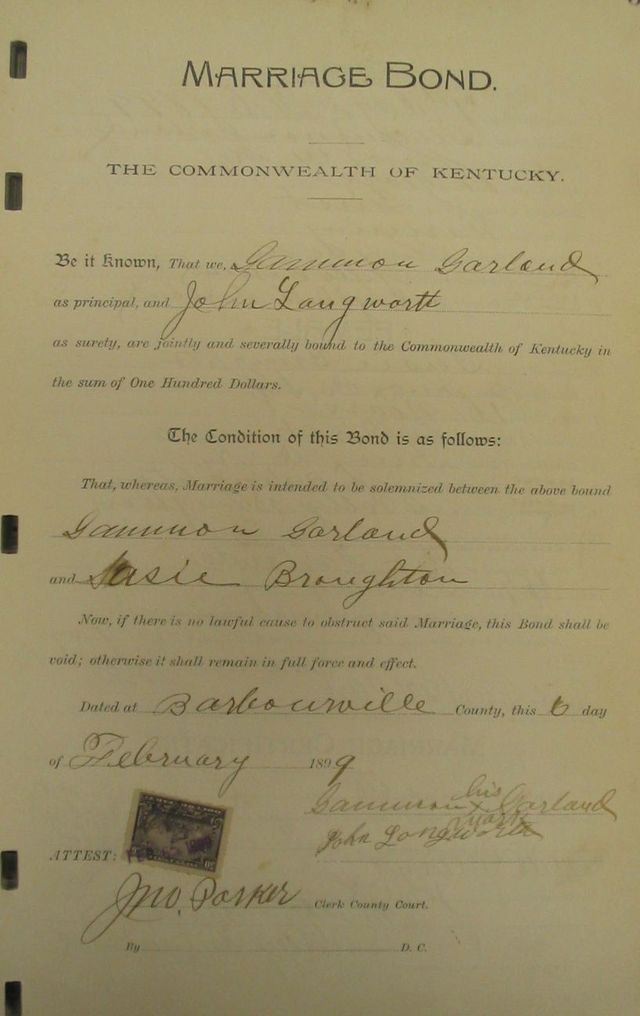 MARRIAGE BOND.
THE COMMONWEALTH OF KENTUCKY.
Be it Known, That we, Gammon Garland
as principal, and John Langworth
as surety, are jointly and severally bound to the Commonwealth of Kentucky in
the sum of One Hundred Dollars.
The Condition of this Bond is as follows:
That, whereas, Marriage is intended to be solemnized between the above bound
Gammon Garland
and Susie Broughton
Now, if there is no lawful cause to obstruct said Marriage, this Bond shall be
void; otherwise it shall remain in full force and effect.
Dated at Barbourville County, this 6 day
of February 1899
his
Gammon x Garland
mark
John Longworth
ATTEST:
Jno. Parker Clerk County Court.
By D. C.